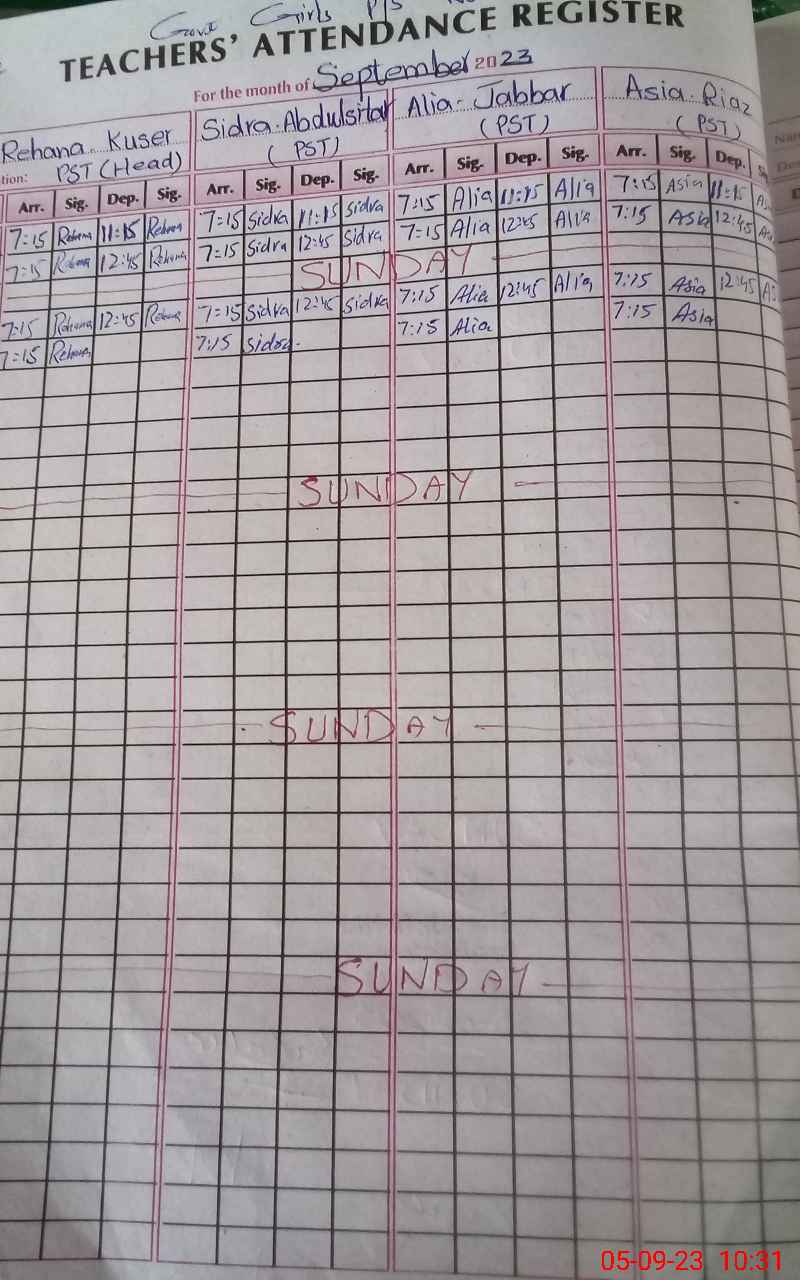 Govt Girls P/S
TEACHERS' ATTENDANCE REGISTER
For the month of September 2023
Rehana Kuser Sidra Abdulsttar Alia Jabbar Asia Riaz
tion: PST (Head) (PST) (PST) (PST)
Arr. Sig. Dep. Sig. Arr. Sig. Dep. Sig. Arr. Sig. Dep. Sig. Arr. Sig. Dep.
7:15 Rehana 11:15 Rehana 7:15 Sidra 11:15 Sidra 7:15 Alia 11:15 Alia 7:15 Asia 11:15 As
7:15 Rehana 12:45 Rehana 7:15 Sidra 12:45 Sidra 7:15 Alia 12:45 Alia 7:15 Asia 12:45 As
SUNDAY
7:15 Rehana 12:45 Rehana 7:15 Sidra 12:45 Sidra 7:15 Alia 12:45 Alia 7:15 Asia 12:45 As
7:15 Rehana 7:15 Sidra 7:15 Alia 7:15 Asia
SUNDAY
SUNDAY
SUNDAY
05-09-23 10:31